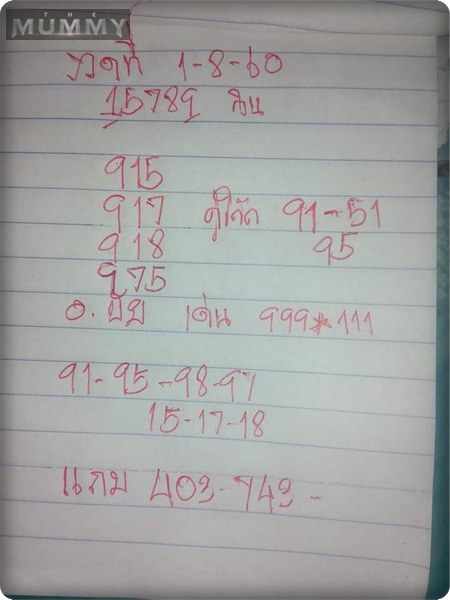 THE
MUMMY
งวดที่ 1-8-60
15789 วิน
915
917 คู่โต๊ด 91-51
918 95
975
อ. ชัย เด่น 999*111
91-95-98-97
15-17-18
แถม 403-743-